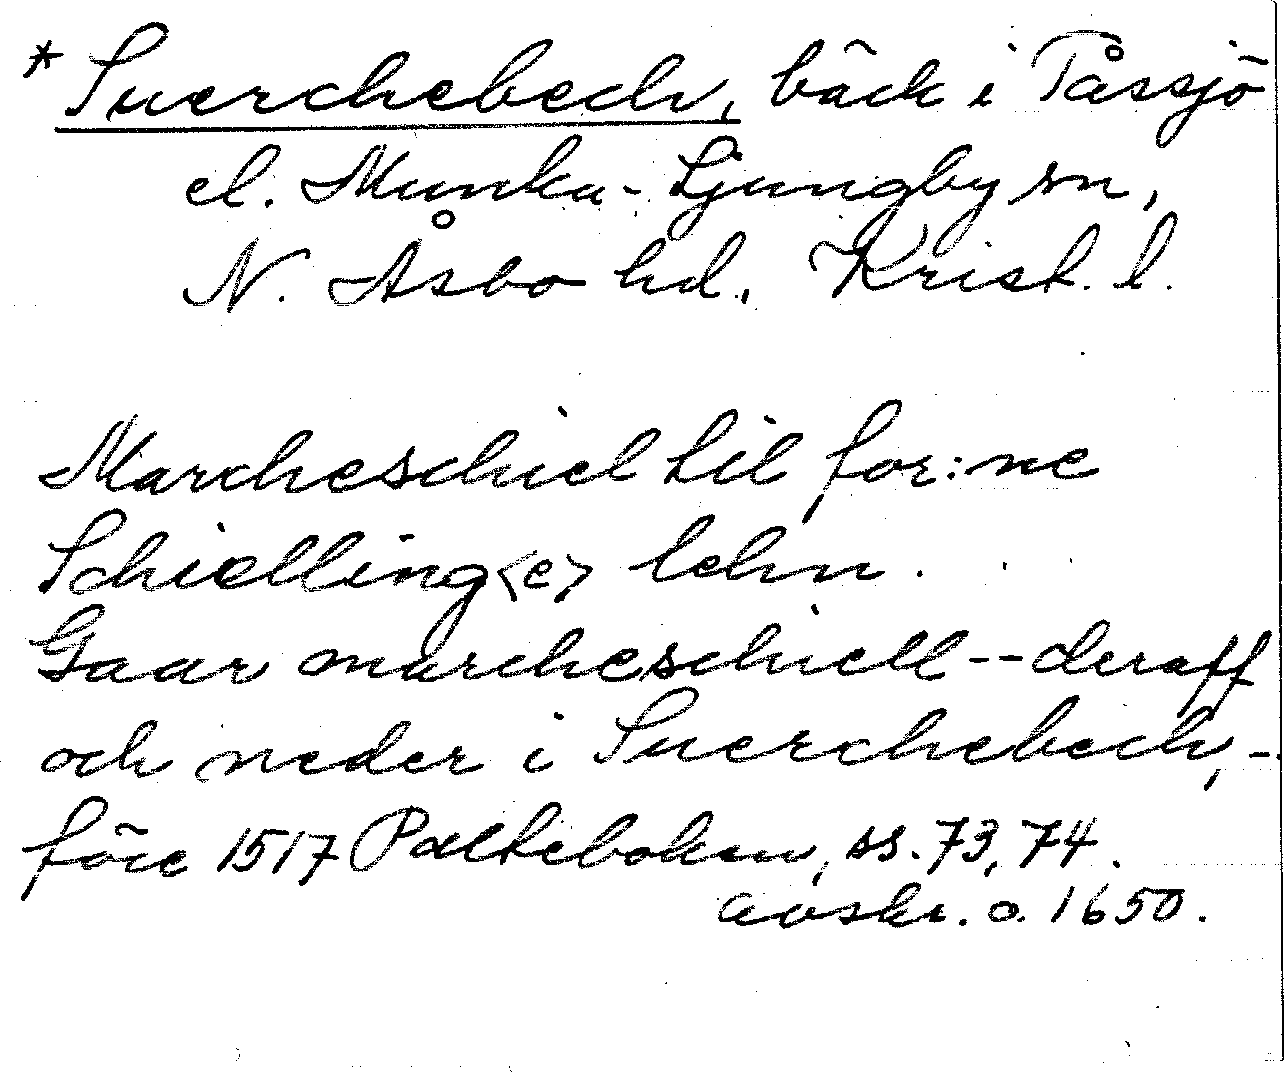 * Suerchebech, bäck i Tåssjö
el. Munka-Ljungby sn,
N. Åsbo hd, Krist. l.
Marcheschiel til for:ne
Schielling<e> lehn.
Gaar marcheschiell -- deraff
och neder i Suerchebech, -
före 1517 Palteboken, ss. 73, 74.
avskr. o. 1650.